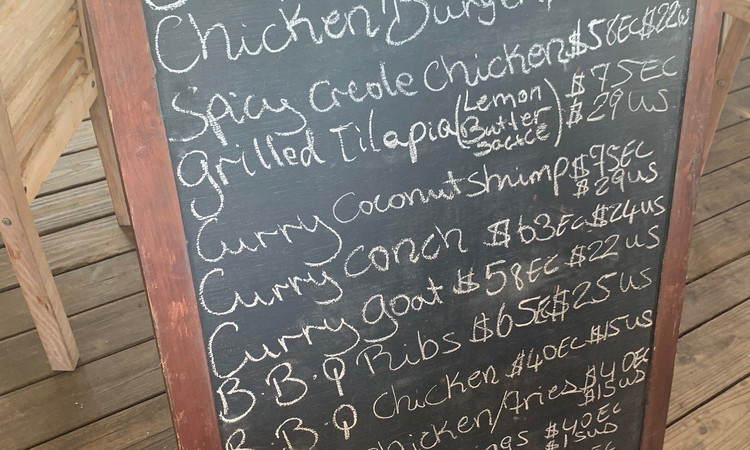 Chicken Burger
Spicy Creole Chicken $58EC $22US
Grilled Tilapia (Lemon Butter Sauce) $75EC $29US
Curry Coconut Shrimp $75EC $29US
Curry Conch $63EC $24US
Curry goat $58EC $22US
B.B.Q Ribs $65EC $25US
B.B.Q Chicken $40EC $15US
Chicken/Fries $40EC $15US
$40EC $15US